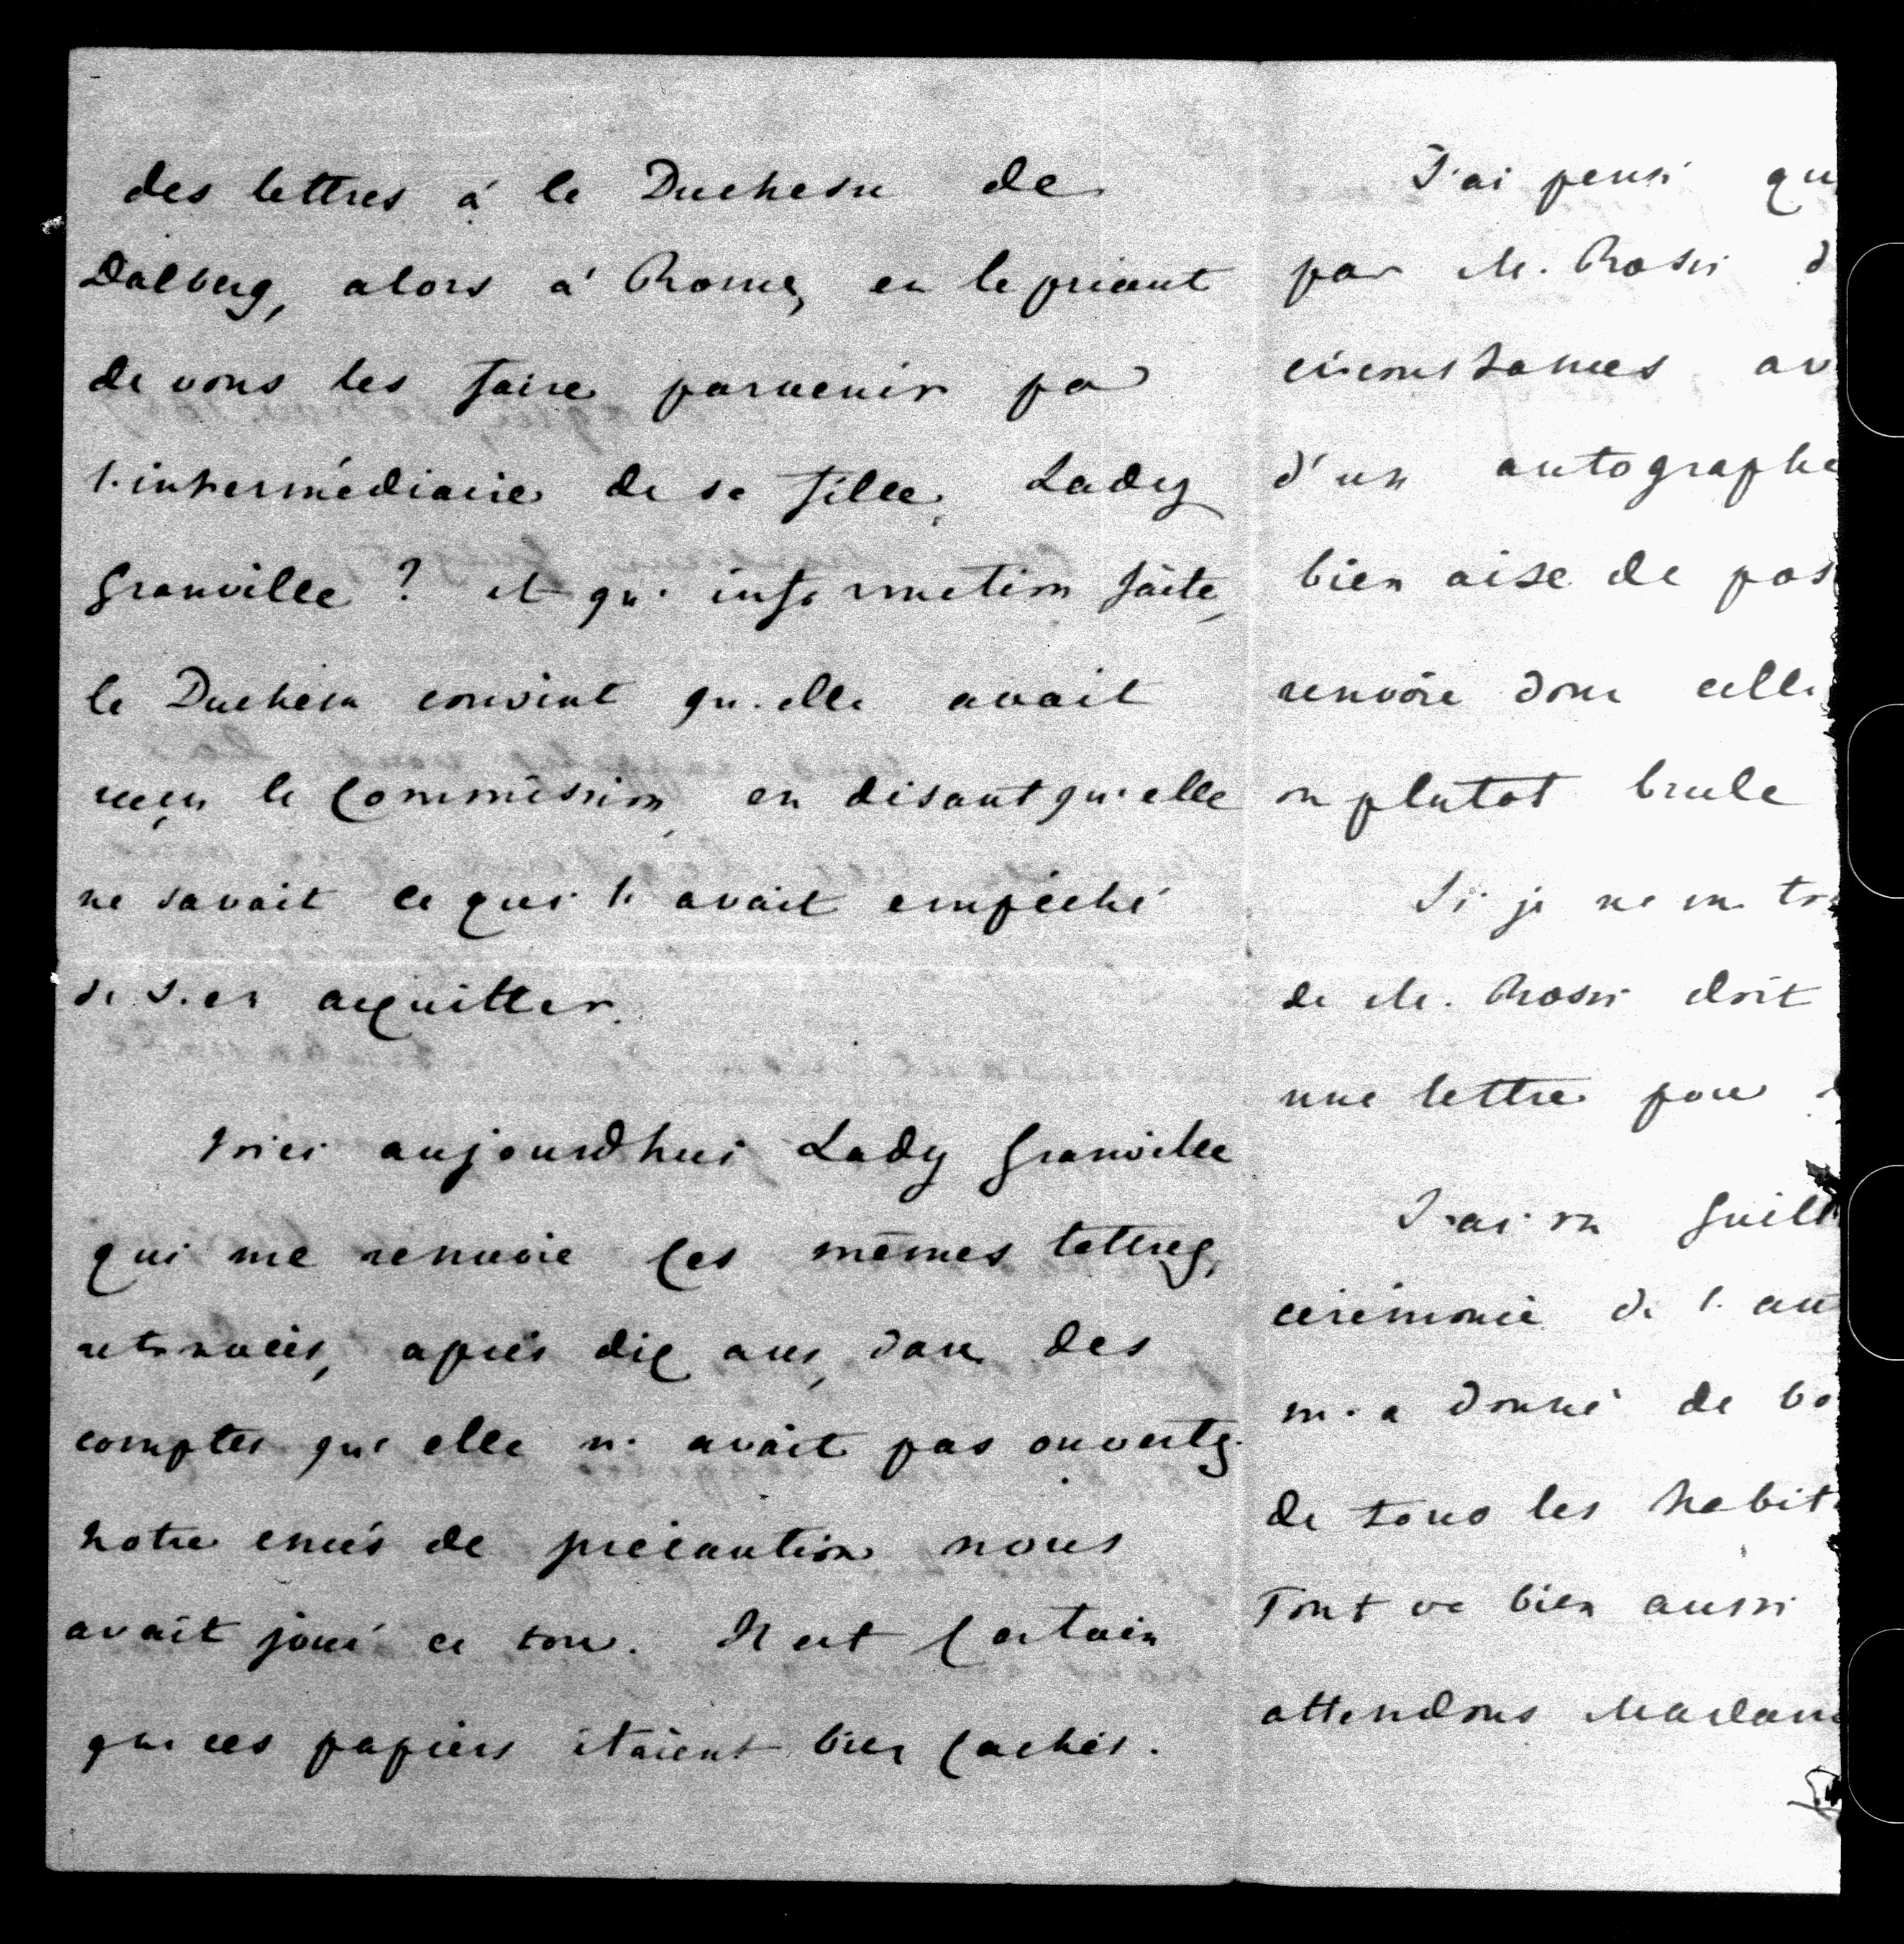 des lettres à la Duchesse de
Dalberg, alors à Rome, en la priant
de vous les faire parvenir par
l'intermédiaire de sa fille, Lady
Granville ? et qu'information faite,
la Duchesse convint qu'elle avait
reçu la commission, en disant qu'elle
ne savait ce qui l'avait empêché
de s'en acquitter.
Voici aujourdhui Lady Granville
qui me renvoie ces mêmes lettres,
retrouvées, après dix ans, dans des
comptes qu'elle n'avait pas ouverts.
notre excès de précaution nous
avait joué ce tour. Il est certain
que ces papiers étaient bien cachés.
J'ai pensé qu
par M. Rossi d
circonstances av
d'un autographe
bien aise de pos
renvoie donc celle
ou plutot brule
Si je ne me tr
de M. Rossi doit
une lettre pour
J'ai vu Guill
cérémonie de l'au
m'a donné de bo
de tous les habit
Tout va bien aussi
attendons Madam